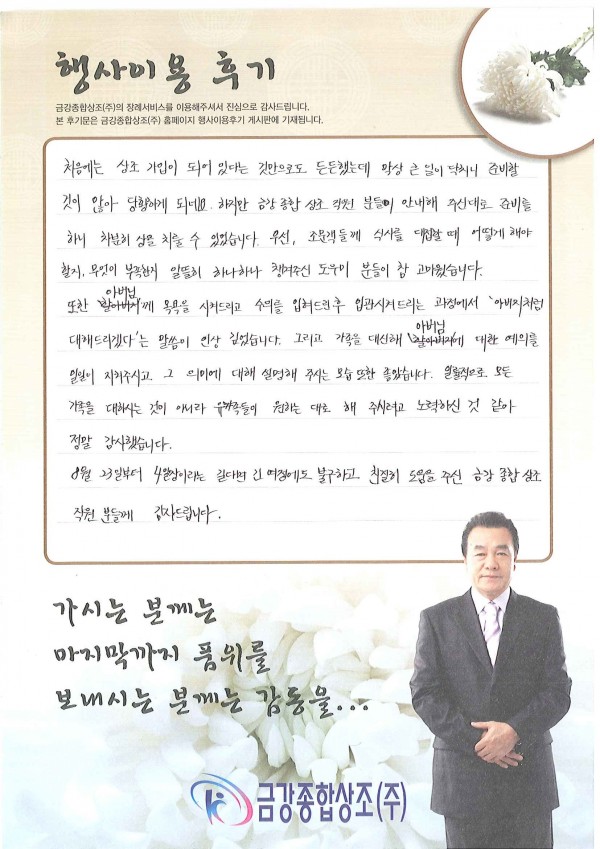 행사이용 후기
금강종합상조(주)의 장례서비스를 이용해주셔서 진심으로 감사드립니다.
본 후기문은 금강종합상조(주) 홈페이지 행사이용후기 게시판에 기재됩니다.
처음에는 상조 가입이 되어 있다는 것만으로도 든든했는데 막상 큰 일이 닥치니 준비할
것이 많아 당황하게 되더군요. 하지만 금강 종합 상조 직원 분들이 안내해 주신대로 준비를
하니 차분히 상을 치룰 수 있었습니다. 우선, 조문객들께 식사를 대접할 때 어떻게 해야
할지, 무엇이 부족한지 알뜰히 하나하나 챙겨주신 도우미 분들이 참 고마웠습니다.
아버님
또한 '할아버지'께 목욕을 시켜드리고 수의를 입혀드린 후 입관시켜드리는 과정에서 '아버지처럼
대해드리겠다'는 말씀이 인상 깊었습니다. 그리고 가족을 대신해 '할아버지'에 대한 예의를
아버님
일일이 지켜주시고, 그 의미에 대해 설명해 주시는 모습 또한 좋았습니다. 일률적으로 모든
가족을 대하시는 것이 아니라 유가족들이 원하는 대로 해 주시려고 노력하신 것 같아
정말 감사했습니다.
8월 23일부터 4일장이라는 길다면 긴 여정에도 불구하고, 친절히 도움을 주신 금강 종합 상조
직원 분들께 감사드립니다.
가시는 분께는
마지막까지 품위를
보내시는 분께는 감동을...
금강종합상조(주)